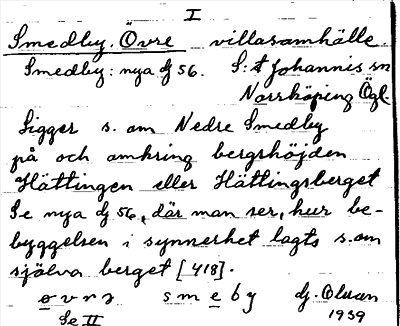 I
Smedby. Övre villasamhälle.
Smedby: nya dj 56. S:t Johannis sn
Norrköping Ögl
Ligger s. om Nedre Smedby
på och omkring bergshöjden
Hättingen eller Hättingsberget
Se nya dj 56, där man ser, hur be-
byggelsen i synnerhet lagts s.om
själva berget [418].
ovra smeby dj. Olsson
Se II 1939